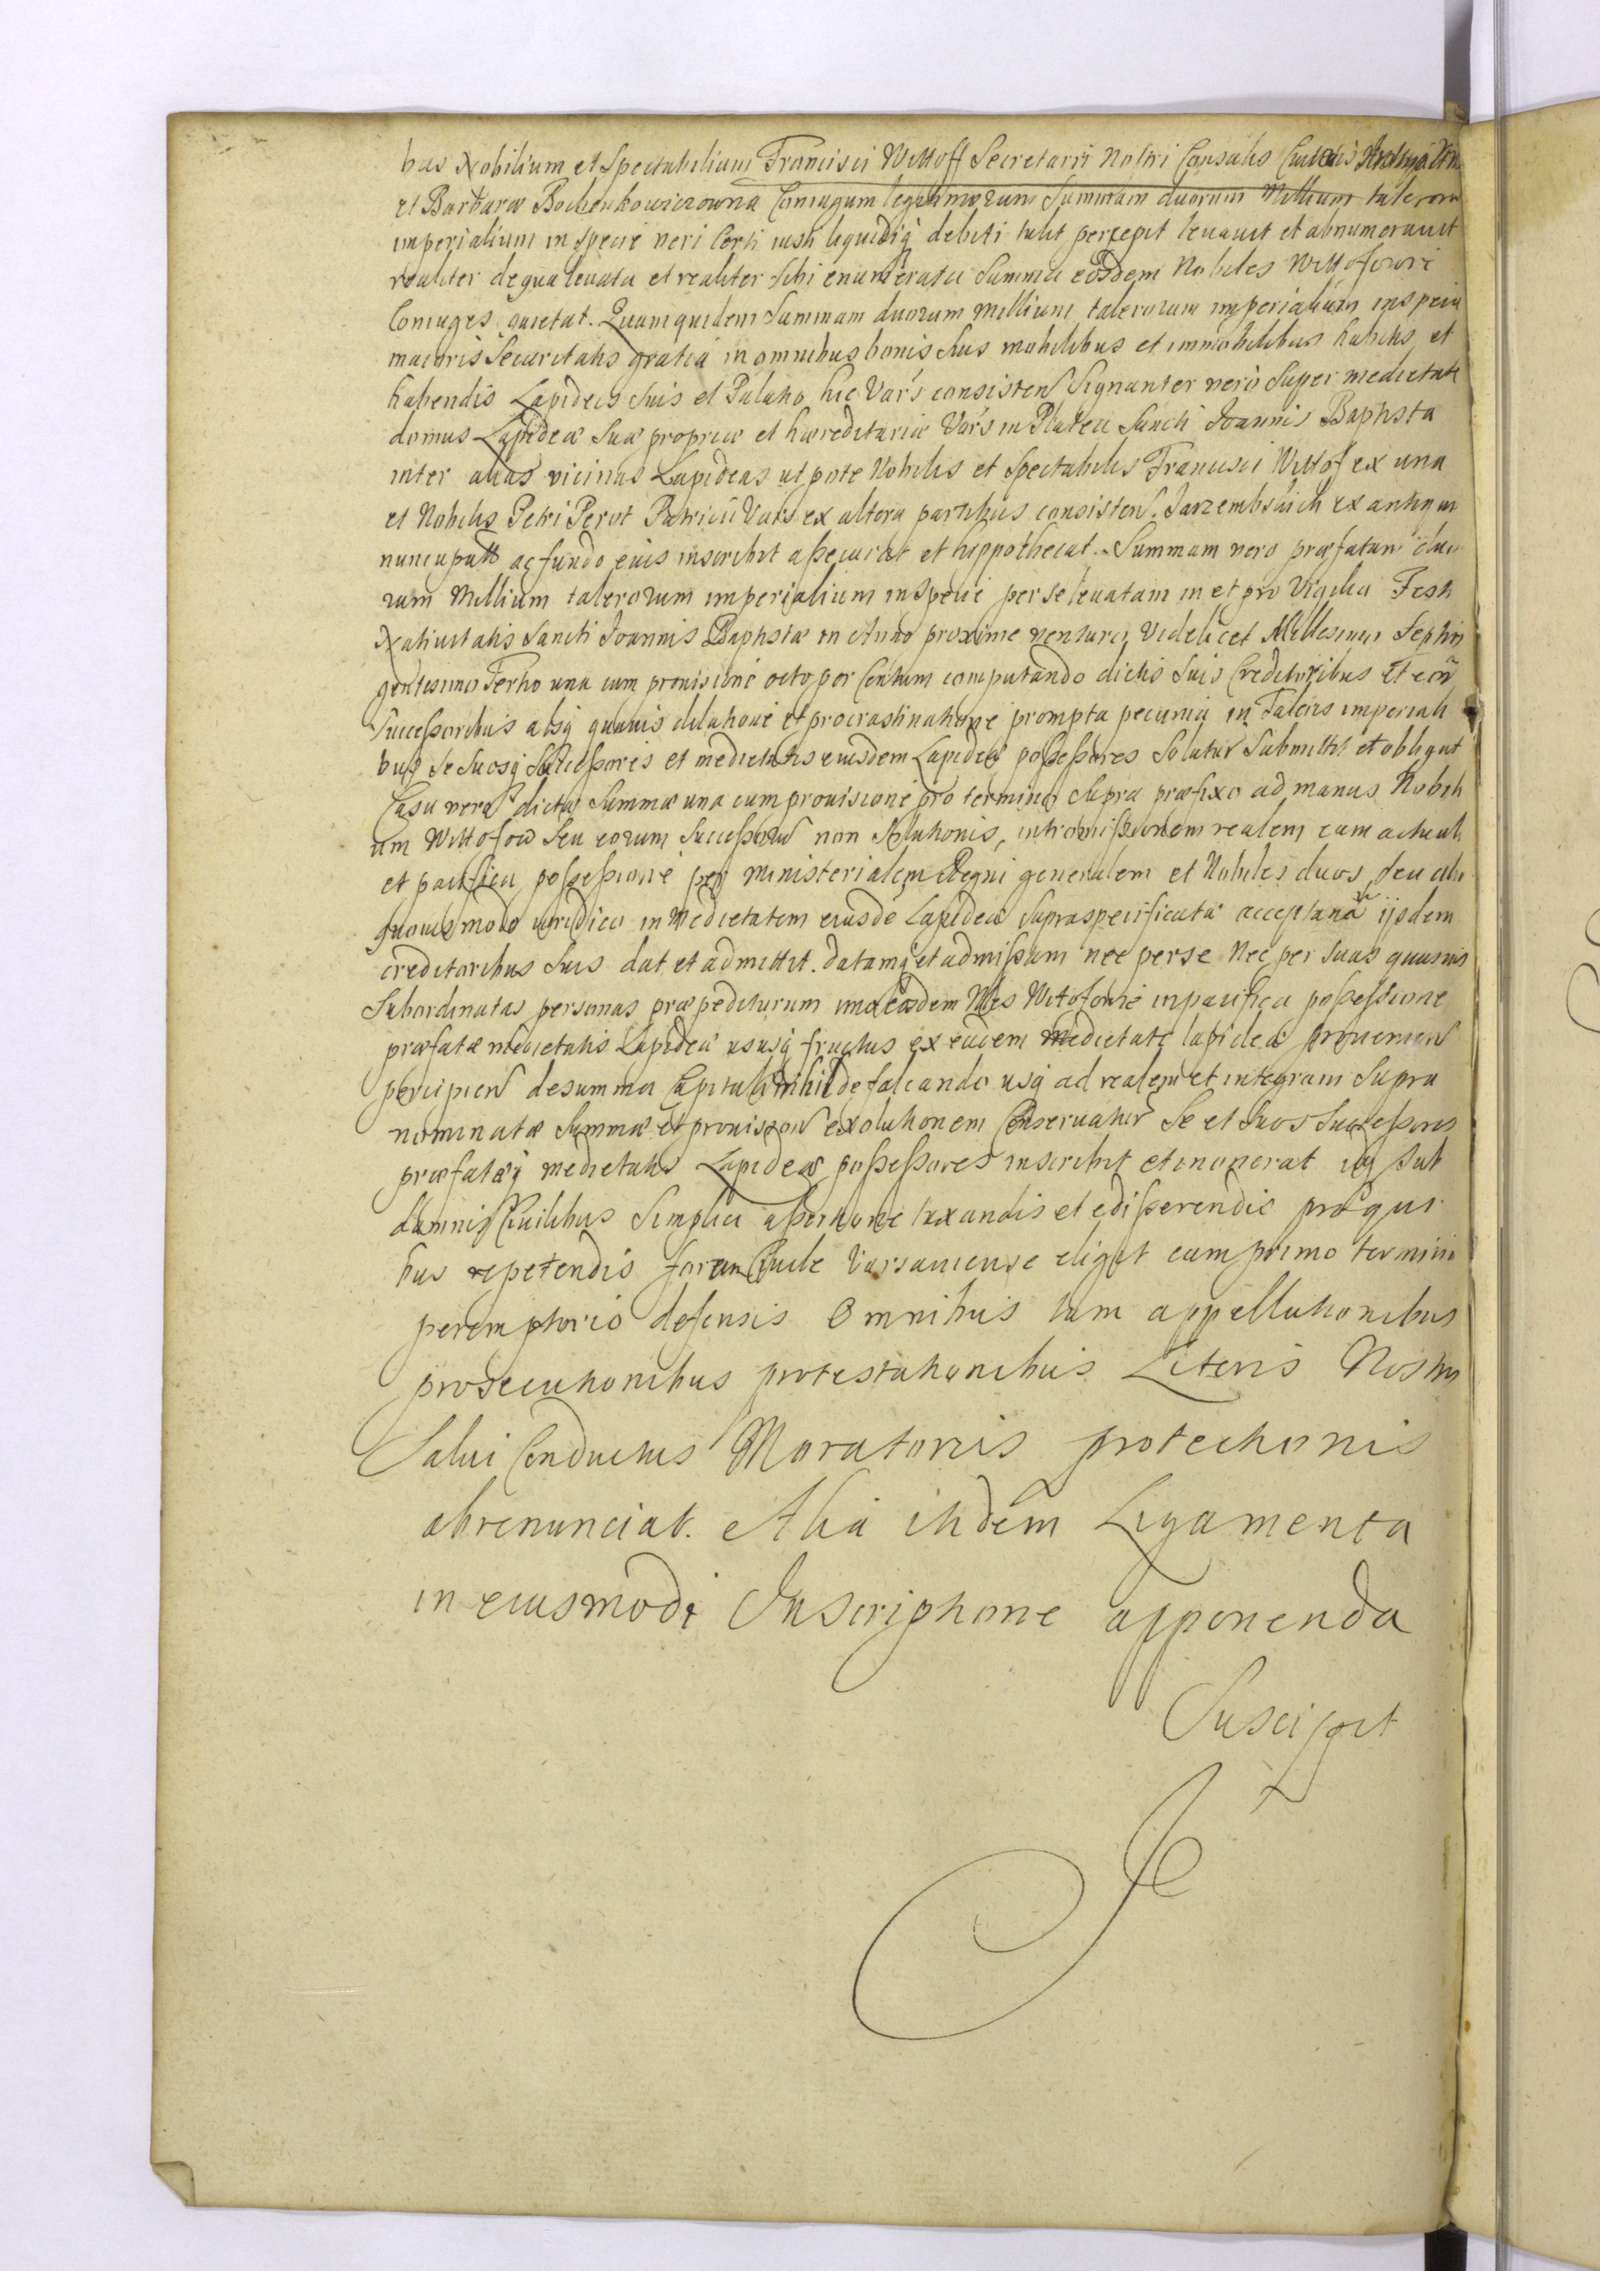 bus Nobilium et Spectabilium Francisci Wittoff Secretarii Nostri Consulis Civitatis
et Barbaræ Bochenkowiczowna Coniugum legitimorum Summam duorum Millium talerorum
imperialium in specie veri Certi iusti liquidiq debiti tulit percepit levavit et abnumeravit
realiter de qua levata et realiter sibi enumerata Summa eosdem Nobiles Wittofowie
Coniuges quietat. Quamquidem Summam duorum Millium talerorum imperialium in specie
maioris Securitatis gratia in omnibus bonis Suis mobilibus et immobilibus habitis et
habendis Lapideis Suis et Palatio hic Vars consisten Signanter vero Super medietate
domus Lapideæ Suæ propriæ et hæreditariæ Vars in Platea Sancti Joannis Baptista
inter alias vicinas Lapideas utpote Nobilis et Spectabilis Francisci Wittof ex una
et Nobilis Petri Perot Patricii Vars ex altera partibus consisten. Jarzembskich ex antiquo
nuncupatt ac fundo eius inscribit assecurat et hippothecat. Summam vero præfatam duo
rum Millium talerorum imperialium in Specie per se levatam in et pro Vigilia Festi
Nativitatis Sancti Joannis Baptistæ in Anno proxime venturo Videlicet Millesimo Septin
gentesimo Tertio una cum provisione octo per Centum computando dictis Suis Creditoribus et eor
Successoribus absq quavis dilatione et procrastinatione prompta pecunia in Taleris imperiali
bus Se Suosq Successores et medietatis eiusdem Lapideæ possessores Solutur Submittit et obligat
Casu vero dictæ Summæ una cum provisione pro termino Supra præfixo ad manus Nobili
um Wittofow Seu eorum Successorum non Solutionis, intromissionem realem cum actuali
et pacifica possessione per Ministerialem Regni generalem et Nobiles duos Seu alio
quovis modo iuridico in Medietatem eiusdē Lapideæ Supraspecificatæ ijsdem
creditoribus Suis dat et admittit. datamq et admissam nec per se Nec per Suas quasvis
Subordinatas personas præpediturum imo eosdem Nles Witofowie in pacifica possessione
præfatæ medietatis Lapideæ ususq fructus ex eadem Medietate lapideæ provenien
percipien de summa Capitali nihil defalcando usq ad realem et integram Supra
nominatæ Summæ et provision exolutionem Conservatur Se et Suos Successores
præfatæq medietatis Lapideæ possessores inscribit et inonerat idq Sub
damnis Civilibus Simplici assertione taxandis et edisserendis pro qui
bus repetendis forum Civile Varsaviense eligit cum primo termino
peremptorio defensis Omnibus tum appellationibus
prosecutionibus protestationibus Literis Nostris
Salvi Conductus Moratoriis protectionis
abrenunciat. Alia itidem Ligamenta
in eiusmodi Inscriptione apponenda
Suscipit